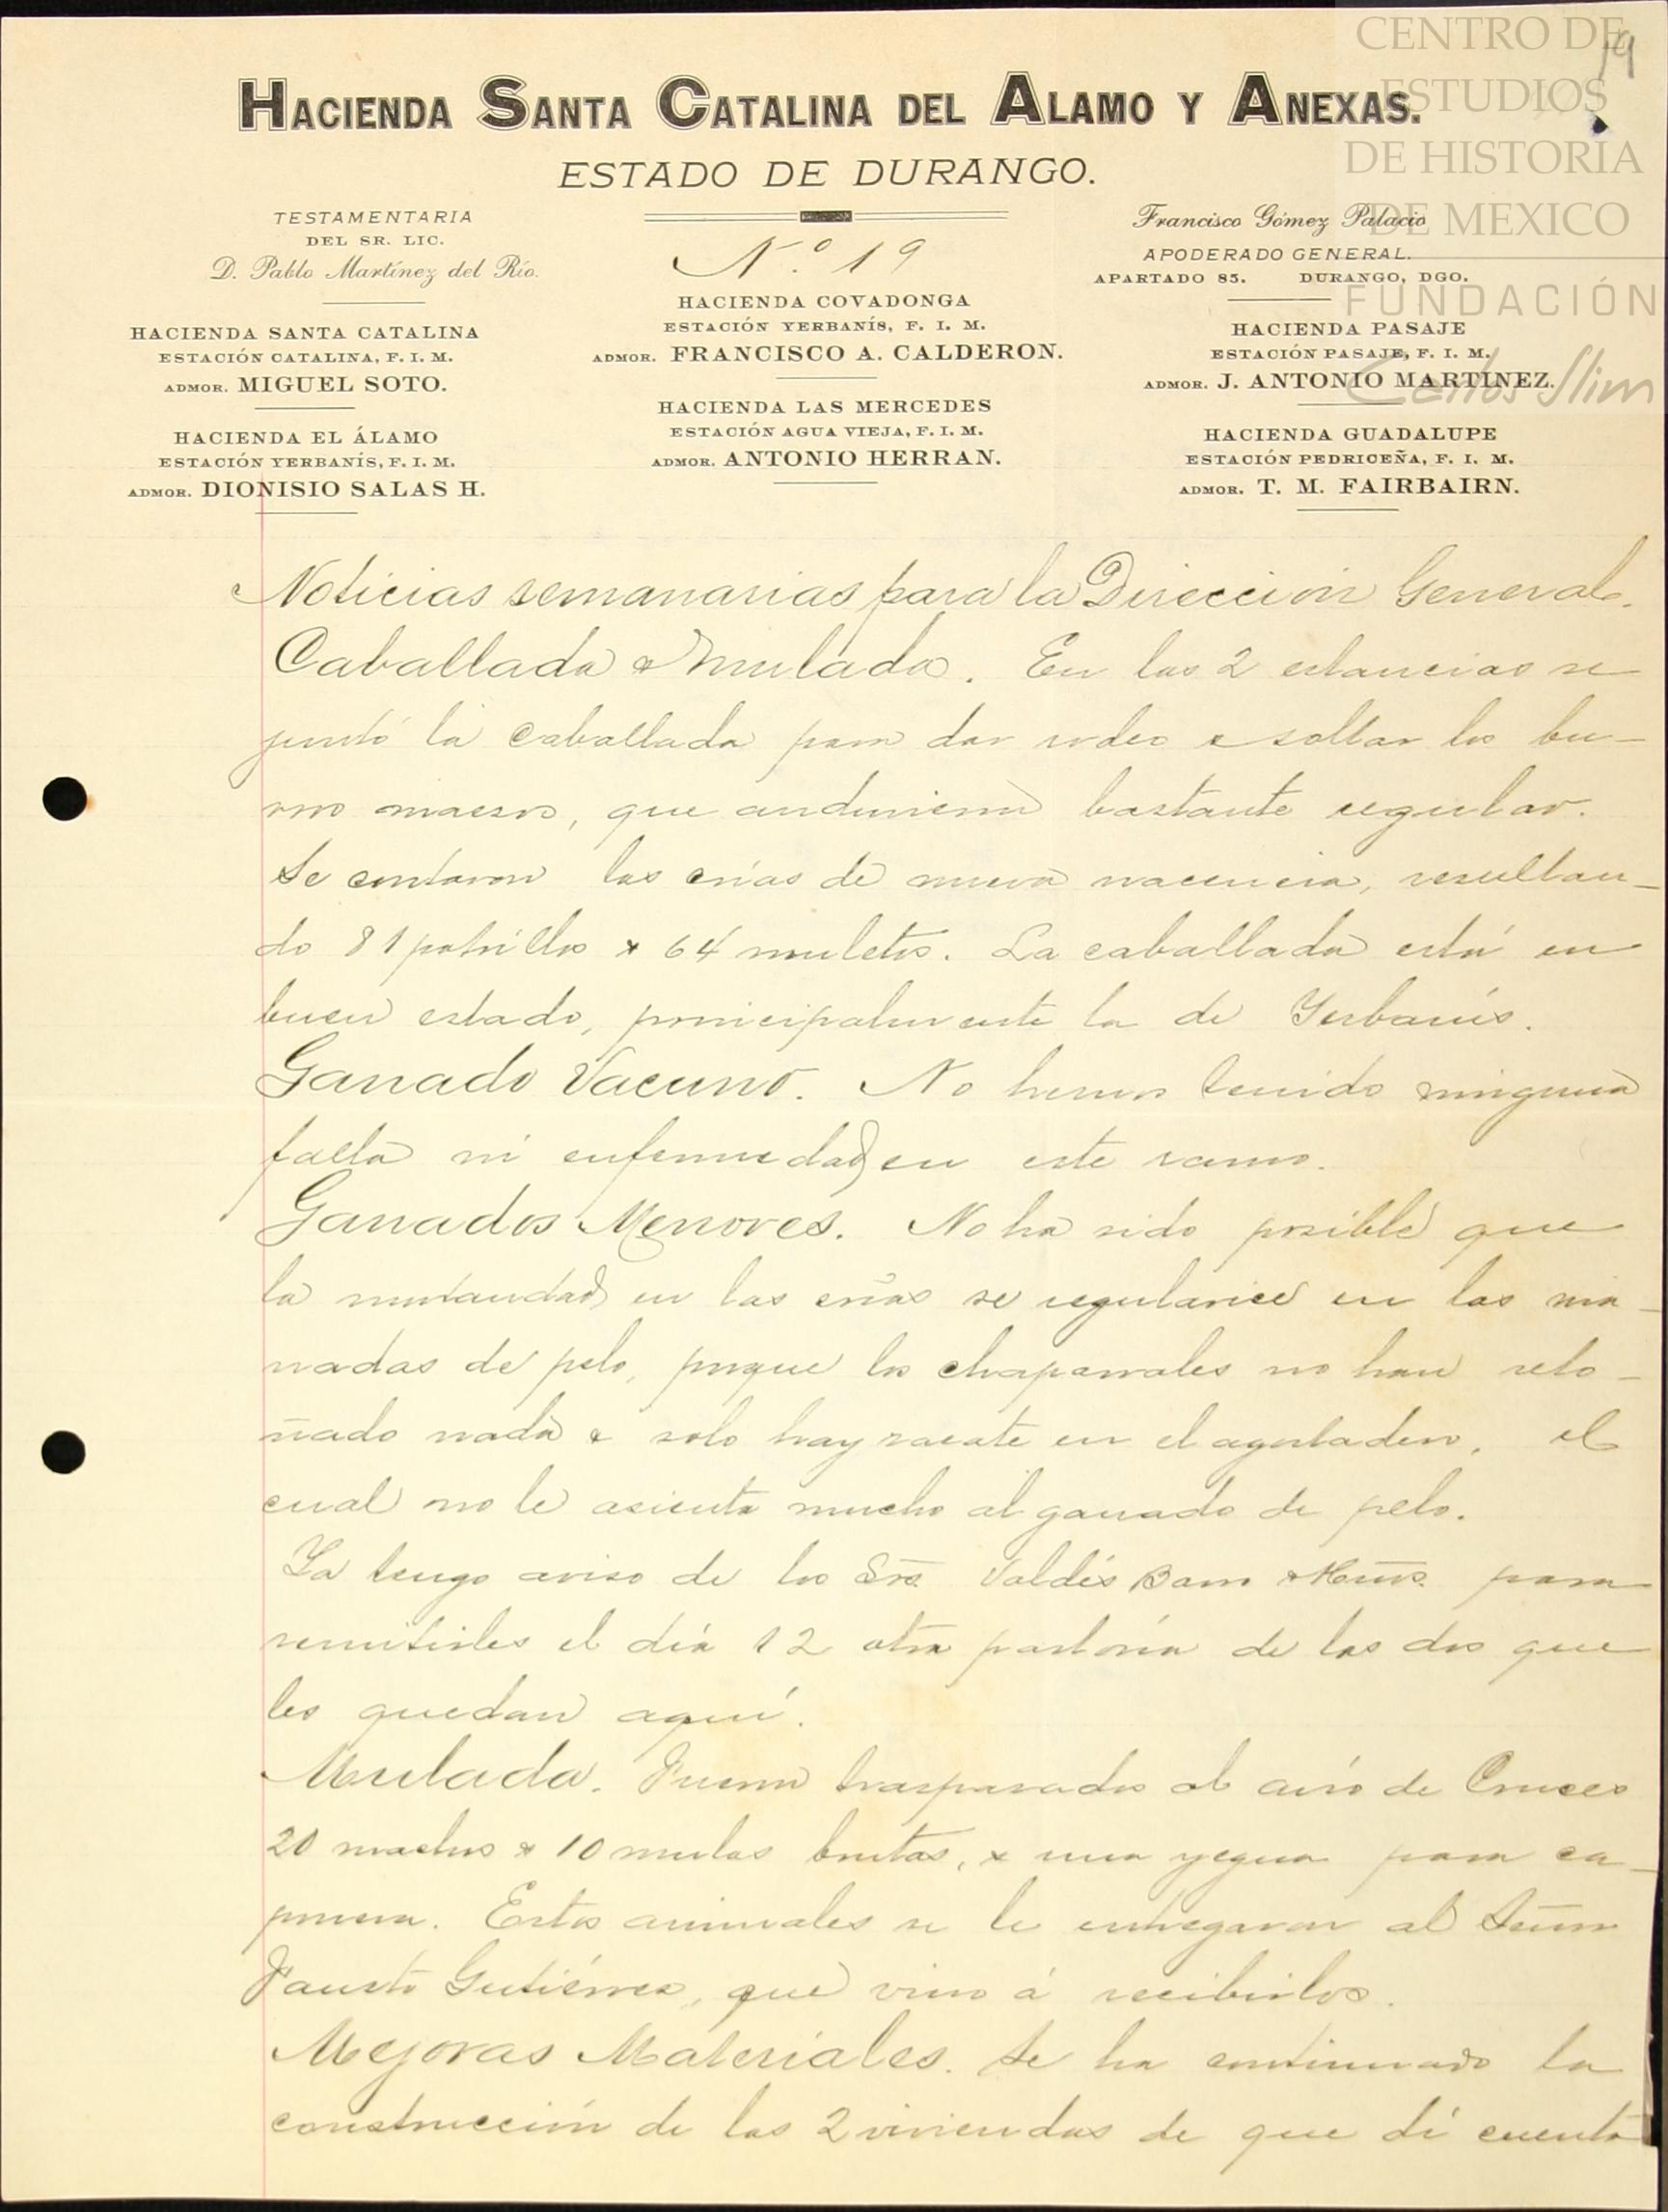 19
CENTRO DE
ESTUDIOS
DE HISTORIA
DE MEXICO
FUNDACIÓN
Carlos Slim
HACIENDA SANTA CATALINA DEL ALAMO Y ANEXAS.
ESTADO DE DURANGO.
TESTAMENTARIA
DEL SR. LIC.
D. Pablo Martínez del Río.
HACIENDA SANTA CATALINA
ESTACIÓN CATALINA, F. I. M.
ADMOR. MIGUEL SOTO.
HACIENDA EL ÁLAMO
ESTACIÓN YERBANÍS, F. I. M.
ADMOR. DIONISIO SALAS H.
N.º 19
HACIENDA COVADONGA
ESTACIÓN YERBANÍS, F. I. M.
ADMOR. FRANCISCO A. CALDERON.
HACIENDA LAS MERCEDES
ESTACIÓN AGUA VIEJA, F. I. M.
ADMOR. ANTONIO HERRAN.
Francisco Gómez Palacio
APODERADO GENERAL.
APARTADO 85. DURANGO, DGO.
HACIENDA PASAJE
ESTACIÓN PASAJE, F. I. M.
ADMOR. J. ANTONIO MARTINEZ.
HACIENDA GUADALUPE
ESTACIÓN PEDRICEÑA, F. I. M.
ADMOR. T. M. FAIRBAIRN.
Noticias semanarias para la Dirección General.
Caballada & mulada. En las 2 estancias se
juntó la caballada para dar rodeo & soltar los bu-
rros maesos, que anduvieron bastante regular.
Se contaron las crías de nueva nacencia, resultan-
do 81 potrillos & 64 muletos. La caballada está en
buen estado, principalmente la de Yerbanís.
Ganado Vacuno. No hemos tenido ninguna
falta ni enfermedad en este ramo.
Ganados Menores. No ha sido posible que
la mortandad en las crías se regularice en las ma-
nadas de pelo, porque los chaparrales no han reto-
ñado nada & solo hay zacate en el agostadero, el
cual no le asienta mucho al ganado de pelo.
Ya tengo aviso de los Srs. Valdés & Hnos. para
remitirles el día 12 otra pastoría de las dos que
les quedan aquí.
Mulada. Fueron traspasados al de Cruces
20 machos & 10 mulas brutas, & una yegua para ca-
ponera. Estos animales se le entregaron al Señor
Fausto Gutiérrez, que vino á recibirlos.
Mejoras Materiales. Se ha continuado la
construcción de las 2 viviendas de que dí cuenta